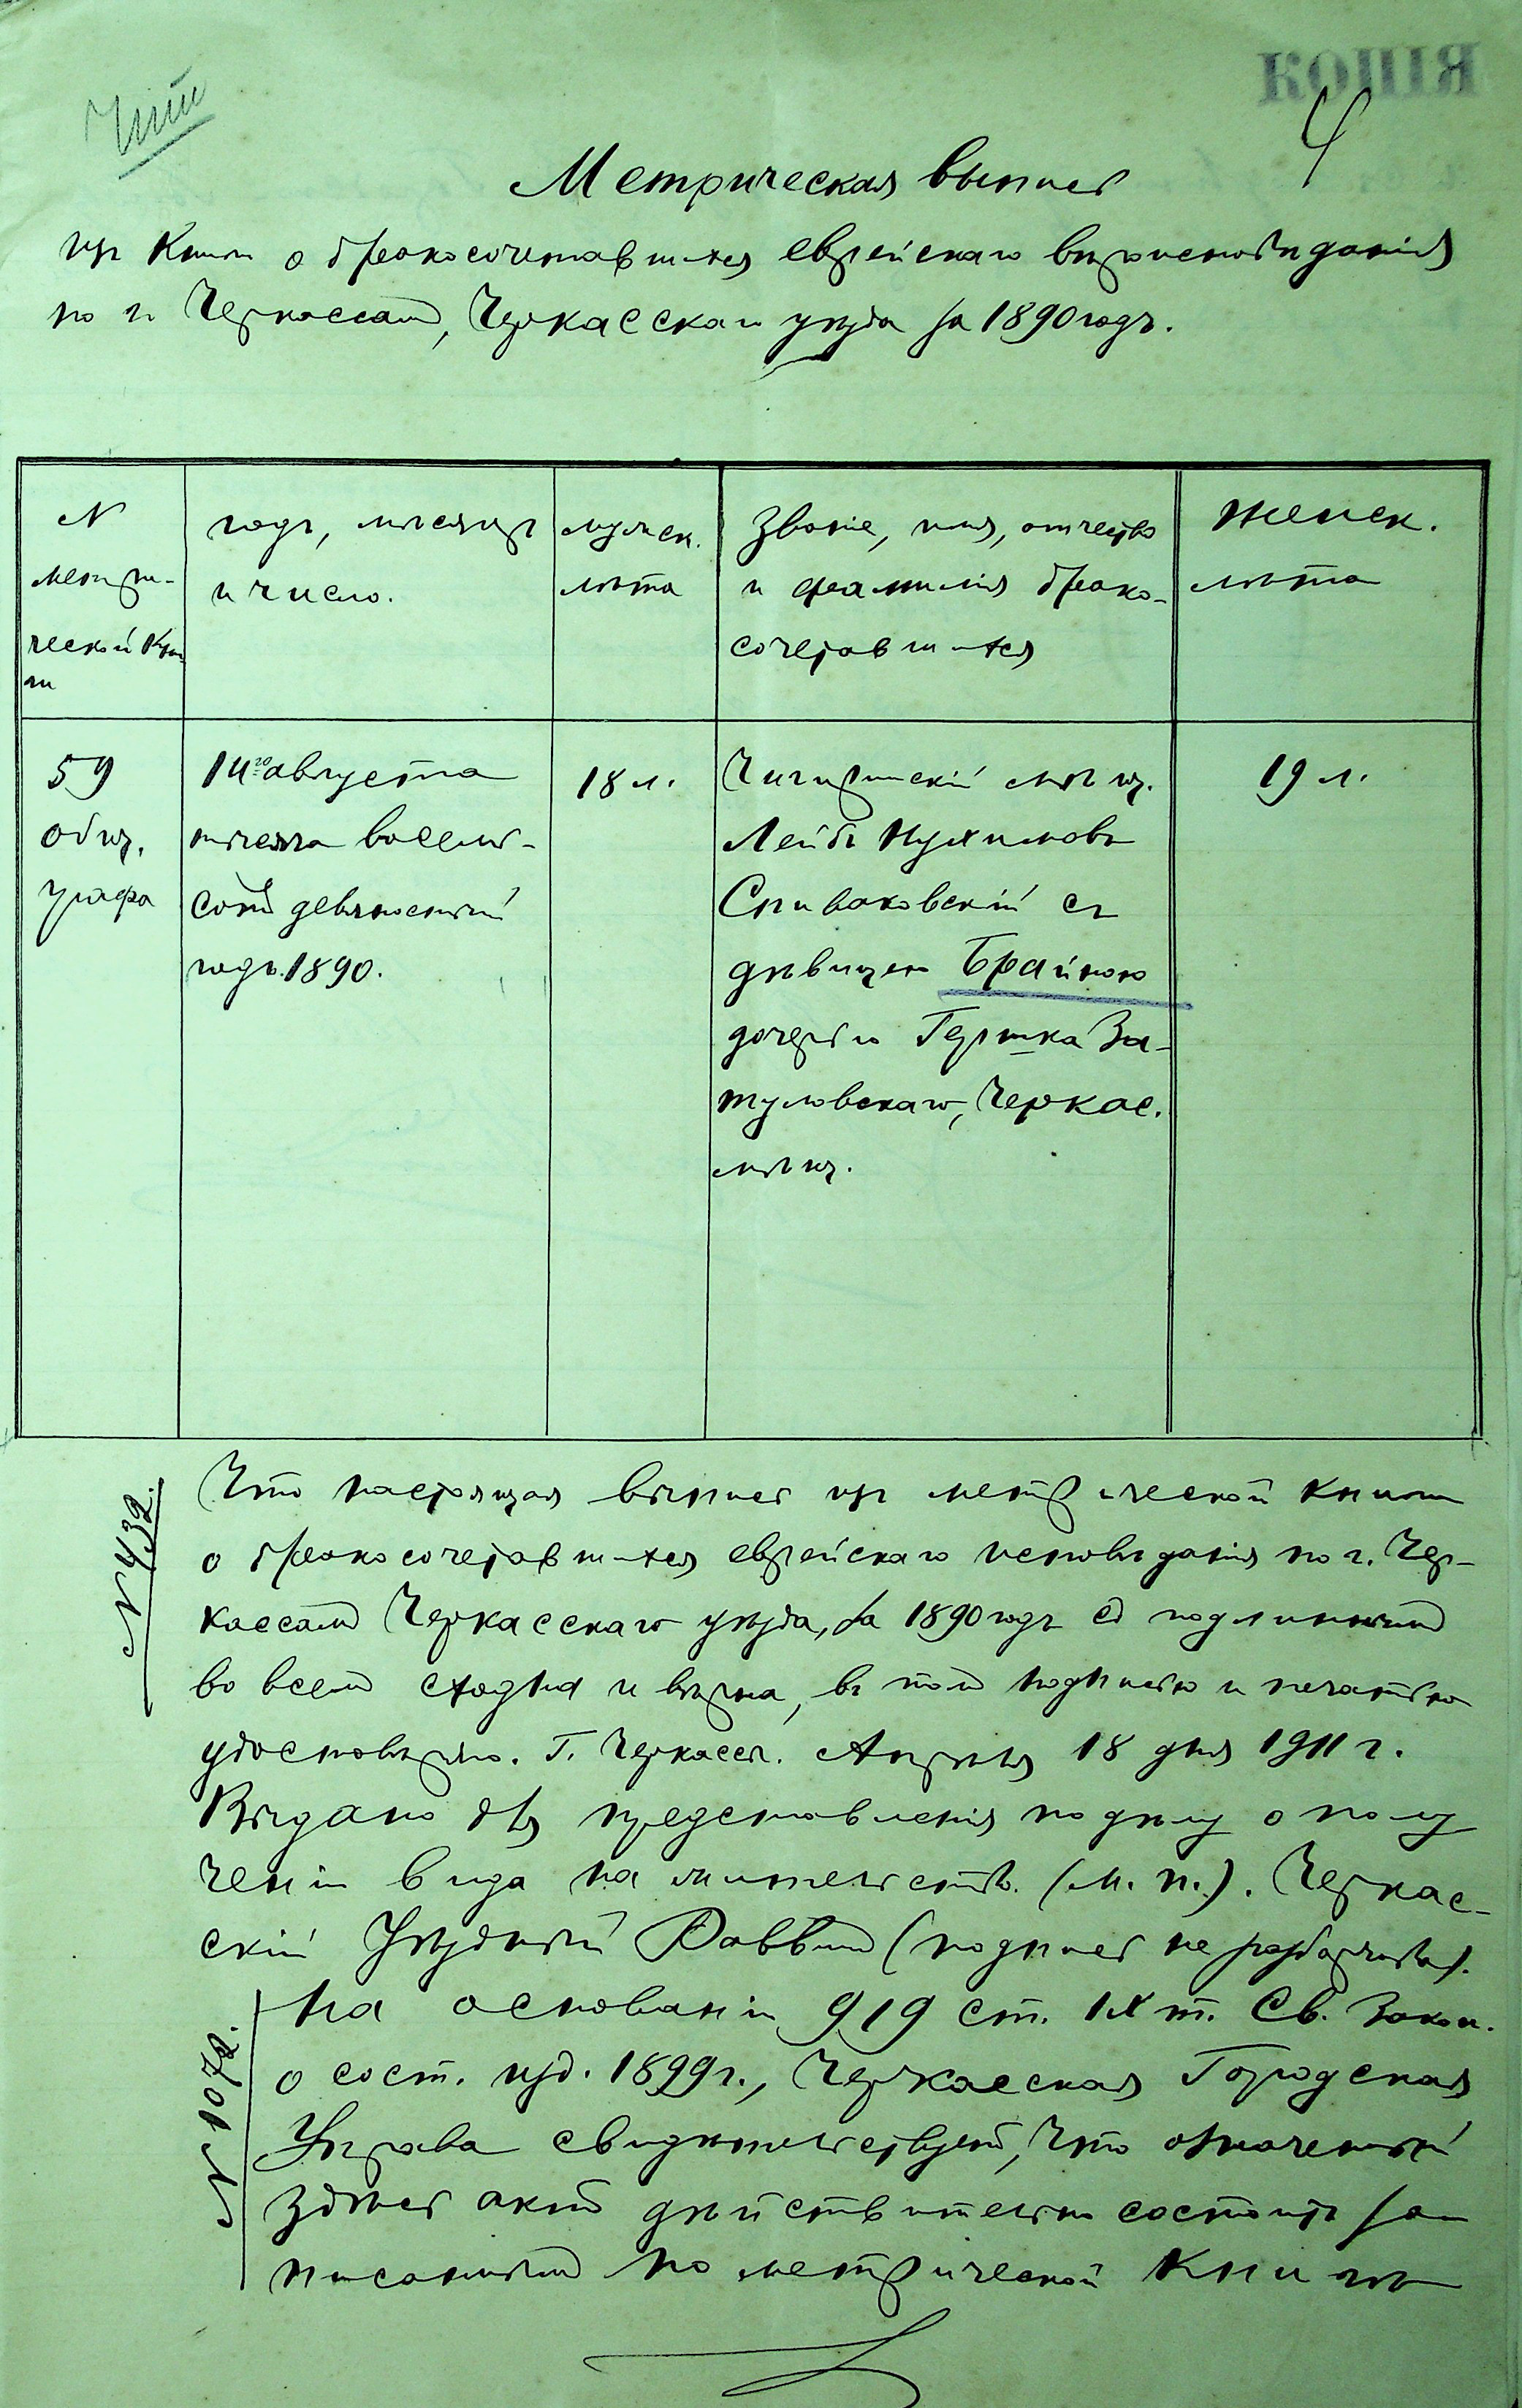 КОПІЯ
4
Метрическая выпись
изъ Книги о бракосочетавшихся еврейскаго вѣроисповѣданія
по г. Черкассамъ, Черкасскаго уѣзда за 1890 годъ.
N
метри-
ческой Кни-
ги
годъ, мѣсяцъ
и число.
мужск.
лѣта
Званіе, имя, отчество
и фамилія брако-
сочетавшихся
женск.
лѣта
59
общ.
графа
14го августа
тысяча восемь-
сотъ девяностый
годъ 1890.
18 л.
Чигиринскій мѣщ.
Лейбъ Нухимовъ
Спиваковскій съ
дѣвицею Брайною
дочерью Гершка За-
туловскаго, Черкас.
мѣщ.
19 л.
N 432.
Что настоящая выпись изъ метрической книги
о бракосочетавшихся еврейскаго исповѣданія по г. Чер-
кассамъ Черкасскаго уѣзда, за 1890 годъ съ подлиннымъ
во всемъ сходна и вѣрна, въ томъ подписью и печатью
удостовѣряю. Г. Черкассы. Апрѣля 18 дня 1911 г.
Выдано для представленія по дѣлу о полу
ченіи вида на жительство. (М. п.). Черкас-
скій Уѣздный Раввинъ (подпись не разборчива).
N 1072.
На основаніи 919 ст. IX т. Св. Закон.
о сост. изд. 1899 г., Черкасская Городская
Управа свидѣтельствуетъ, что означенный
здѣсь актъ дѣйствительно состоитъ за
писаннымъ по метрической Книгѣ